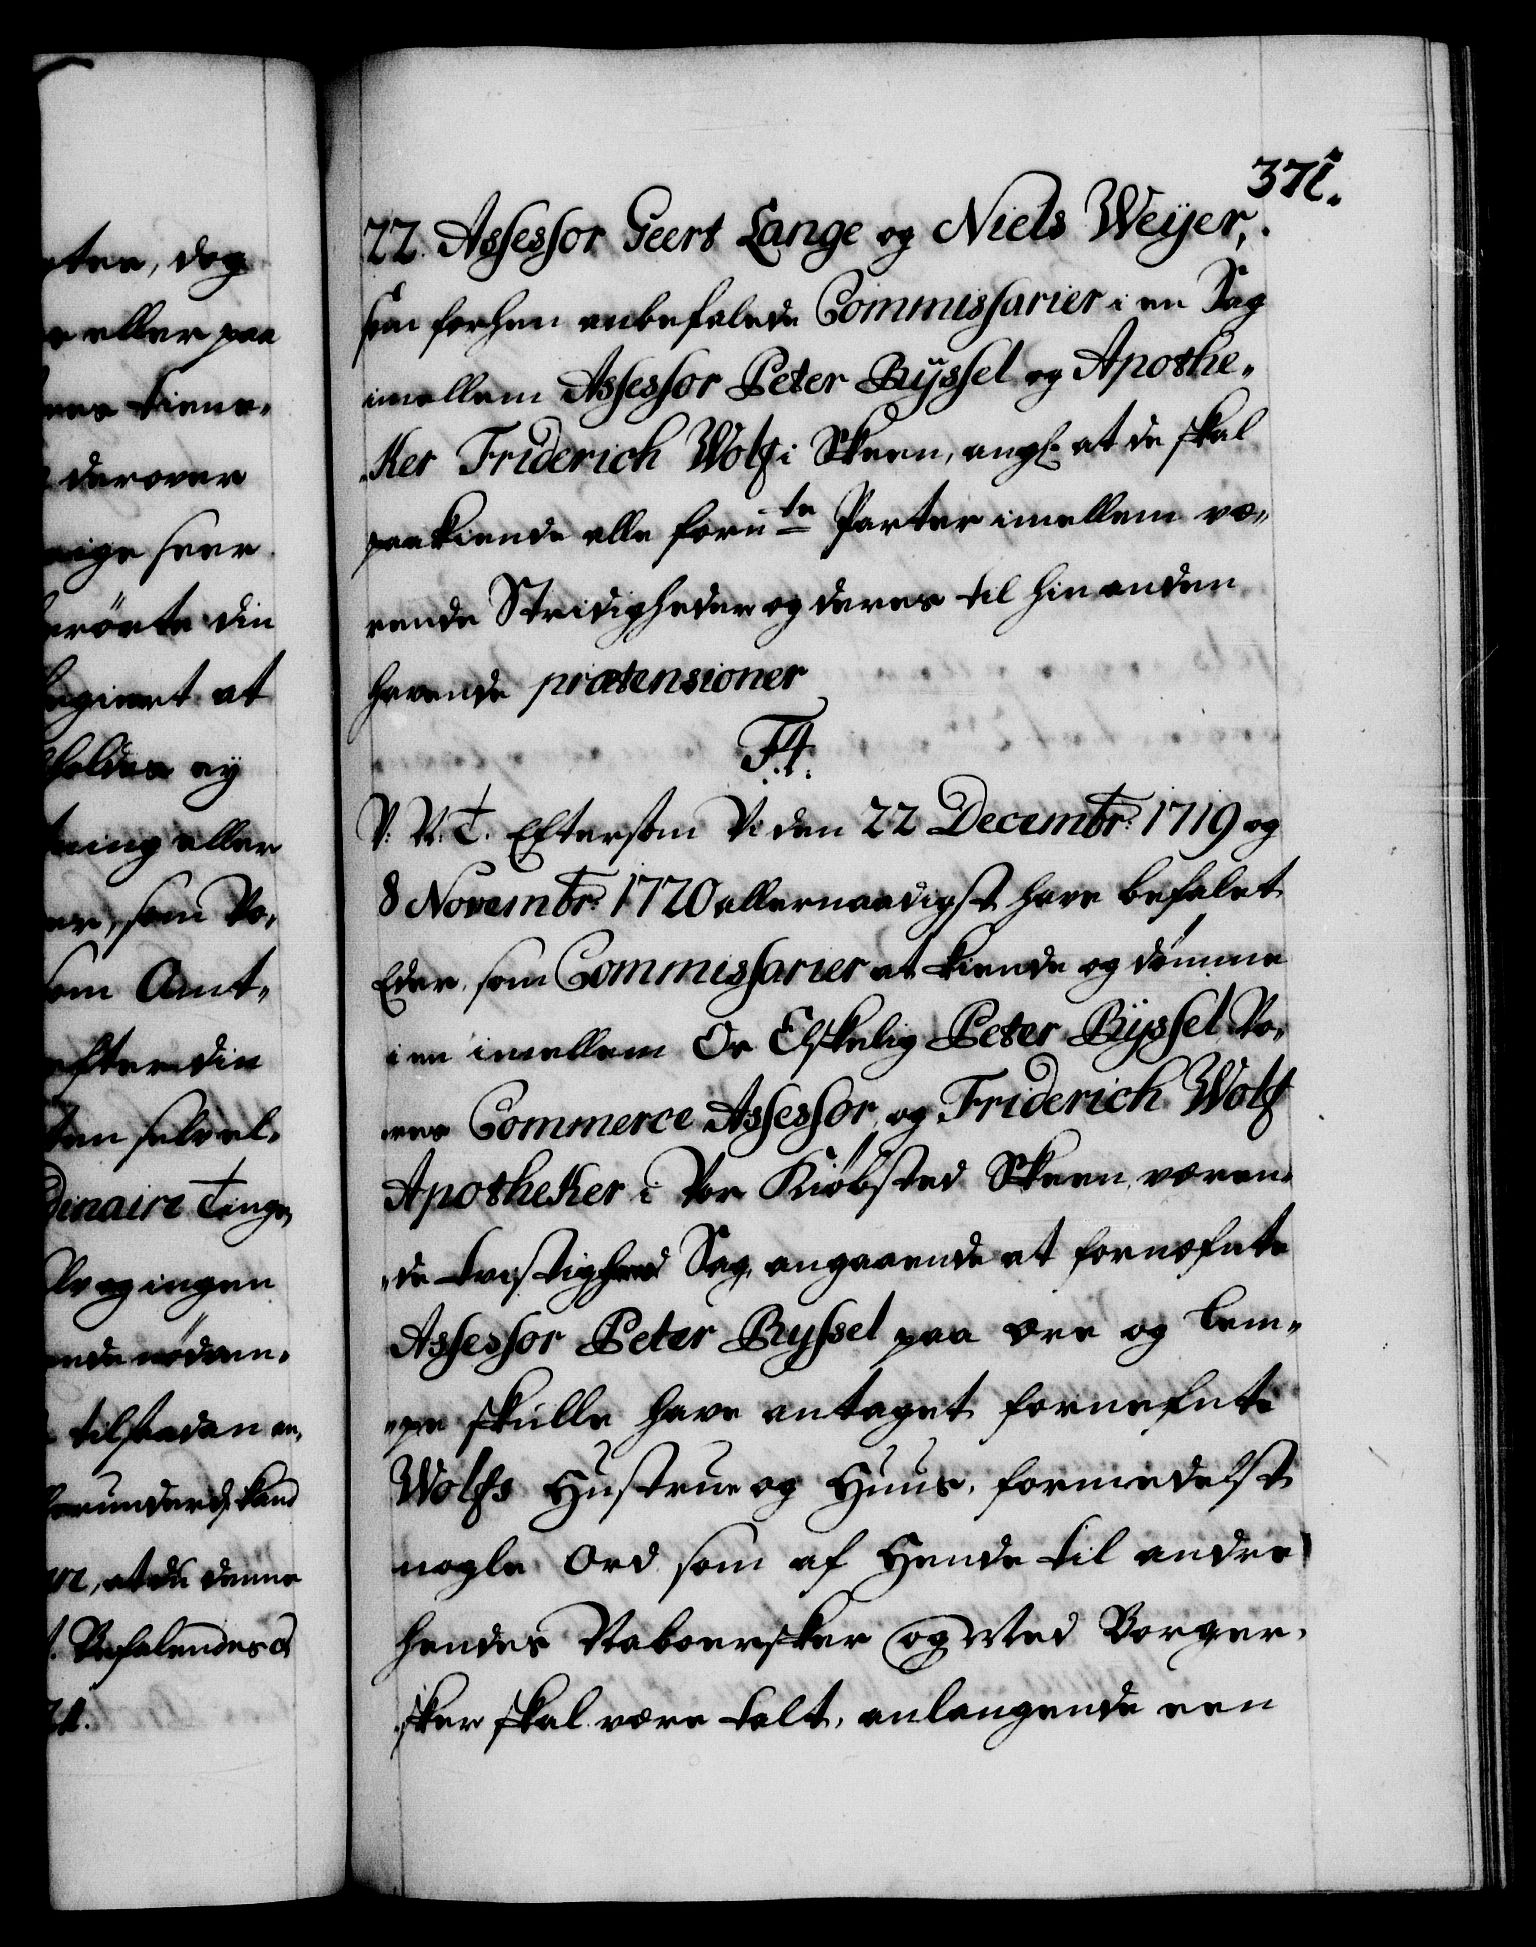 371.
22. Assessor Geert Lange og Niels Weÿer,
som forhen anbefalede Commissarier i en Sag
imellem Assessor Peter Bÿssel og Apothe„
„ker Friderich Wolf i Skeen, angl. at de skal
paakiende alle forn te Parter imellem væ„
rende Stridigheder og deres til hin anden
havende prætensioner
F4.
V. V. T. Eftersom Vi den 22 Decembr: 1719 og
8 Novembr: 1720 allernaadigst have befalet
Eder, som Commissarier at kiende og dømme
i en imellem Os Elskelig Peter Bÿssel, Vo„
res Commerce Assessor, og Friderich Wolf
Apotheker i Vor Kiøbsted Skeen, væren„
„de tvistigheds Sag, angaaende at fornefnte
Assessor Peter Byssel paa ære og Lem„
„pe skulle have antaget fornefnte
Wolfs Hustrue og Huus, formedelst
nogle Ord som af Hende til andre
hendes Naboersker og Med Borger„
„sker skal være talt, anlangende een
ter, dog
eller paa
derover
eller
, som Vo„
som Amt„
efter din
dinaire Tinge
og ingen
tilstaden
, at du denne
Befalendes